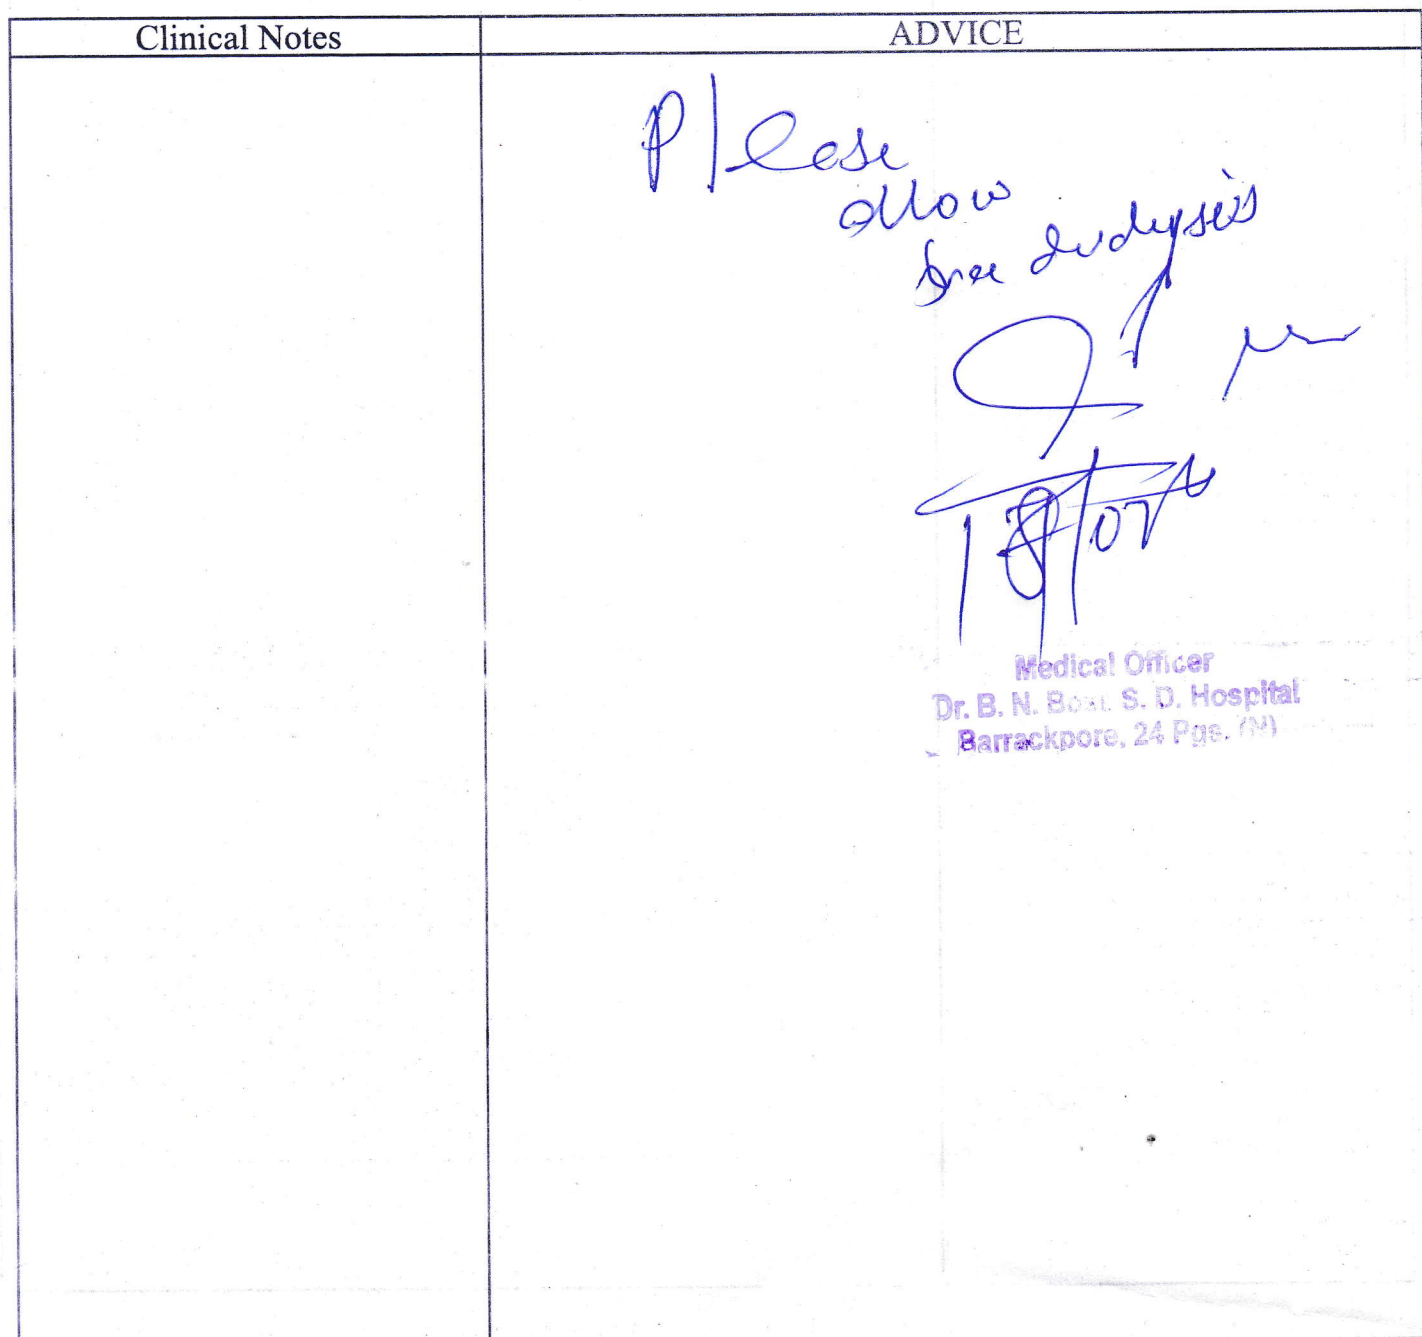 Clinical Notes
ADVICE
Please
allow
free dialysis
Medical Officer
Dr. B. N. Bose S. D. Hospital
Barrackpore, 24 Pgs. (N)